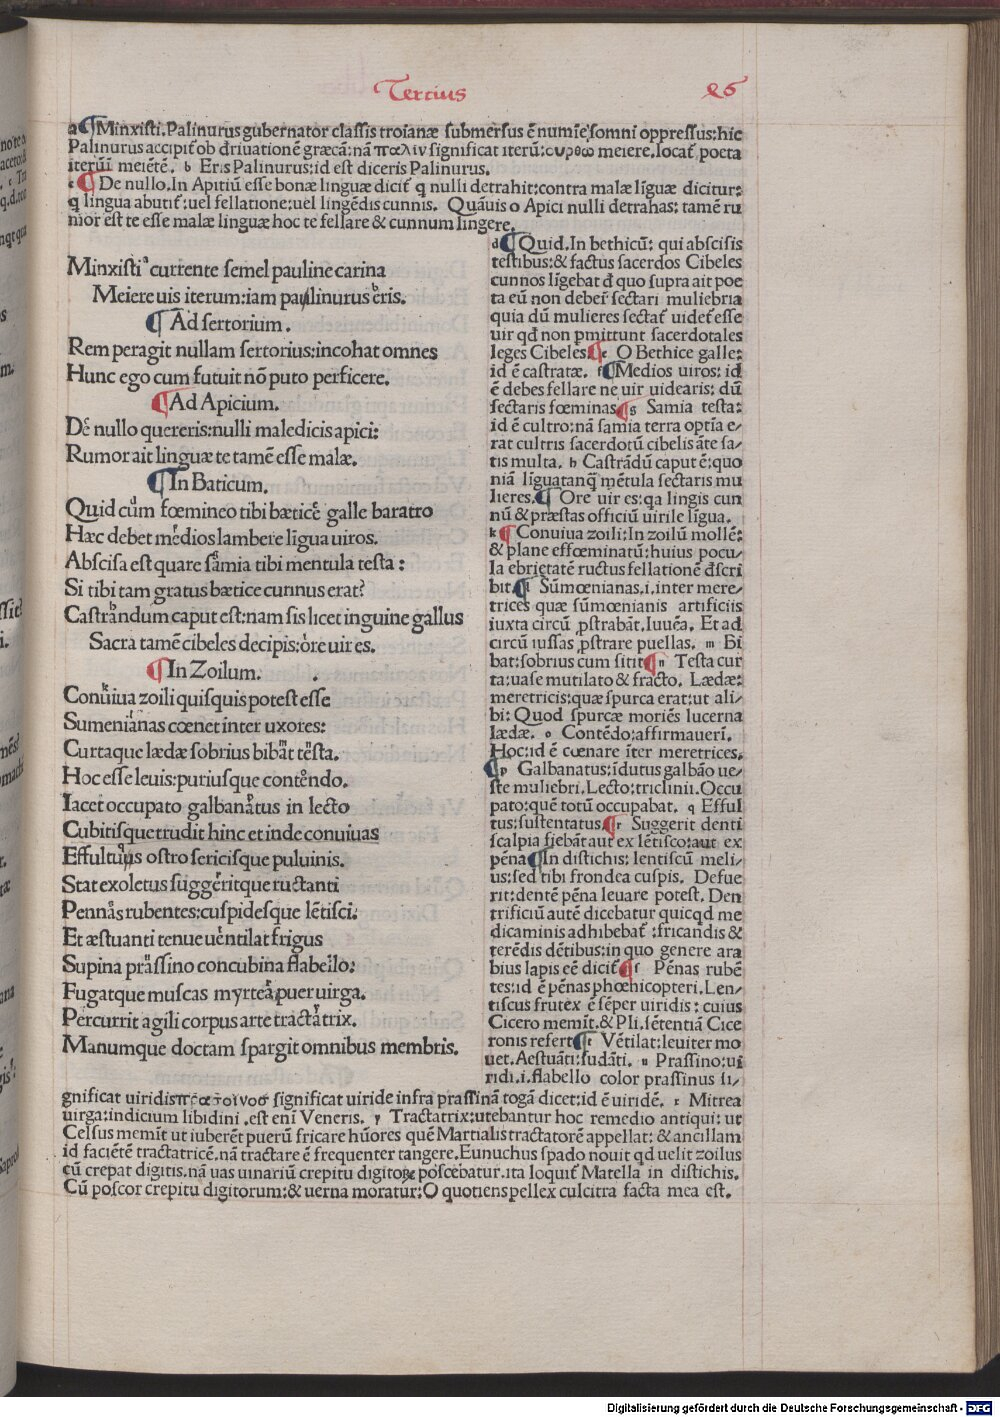 Tercius
a ¶Minxisti. Palinurus gubernator classis troianæ submersus ē numīe somni oppressus: hic
Palinurus accipit̃ ob đriuationē græcā: nā παλιν significat iterū: ουρθω meiere. locat̃ poeta
iterū meiētē. b Eris Palinurus: id est diceris Palinurus.
c ¶ De nullo. In Apitiū esse bonæ linguæ dicit̃ q nulli detrahit: contra malæ līguæ dicitur:
q lingua abutit̃: uel fellatione: uel lingēdis cunnis. Quāuis o Apici nulli detrahas: tamē ru
mor est te esse malæ linguæ hoc te fellare & cunnum lingere.
Minxisti currente semel pauline carina
Meiere uis iterum: iam palinurus eris.
¶ Ad sertorium.
Rem peragit nullam sertorius: incohat omnes
Hunc ego cum futuit nō puto perficere.
¶Ad Apicium.
De nullo quereris: nulli maledicis apici:
Rumor ait linguæ te tamē esse malæ.
¶In Baticum.
Quid cum fœmineo tibi bætice galle baratro
Hæc debet medios lambere līgua uiros.
Abscisa est quare samia tibi mentula testa:
Si tibi tam gratus bætice cunnus erat?
Castrandum caput est: nam sis licet inguine gallus
Sacra tamē cibeles decipis: ore uir es.
¶In Zoilum.
Conuiua zoili quisquis potest esse
Sumenianas cœnet inter uxores:
Curtaque lædæ sobrius bibat testa.
Hoc esse leuis: puriusque contendo.
Iacet occupato galbanatus in lecto
Cubitisque trudit hinc et inde conuiuas
Effultus ostro sericisque puluinis.
Stat exoletus suggeritque ructanti
Pennas rubentes: cuspidesque lētisci:
Et æstuanti tenue uentilat frigus
Supina prassino concubina flabello:
Fugatque muscas myrtea puer uirga.
Percurrit agili corpus arte tractatrix.
Manumque doctam spargit omnibus membris.
d ¶Quid. In bethicū: qui abscisis
testibus: & factus sacerdos Cibeles
cunnos līgebat đ quo supra ait poe
ta eū non deber̃ sectari muliebria
quia dū mulieres sectat̃ uidet̃ esse
uir qđ non pmittunt sacerdotales
leges Cibeles. ¶e O Bethice galle:
id ē castratæ. f ¶Medios uiros: id
ē debes fellare ne uir uidearis: dū
sectaris fœminas ¶g Samia testa:
id ē cultro: nā samia terra optīa e-
rat cultris sacerdotū cibelis āte sa-
tis multa. h Castrādū caput ē: quo
niā līguatanq̃ mētula sectaris mu
lieres. ¶ Ore uir es: qa lingis cun
nū & præstas officiū uirile līgua.
k ¶Conuiua zoili: In zoilū mollē:
& plane effœminatū: huius pocu-
la ebrietatē ructus fellationē đscri
bit. ¶l Sūmœnianas. i. inter mere-
trices quæ sūmœnianis artificiis
iuxta circū ꝓstrabāt. Iuuēa. Et ad
circū iussas ꝓstrare puellas. m Bi
bat: sobrius cum sitit ¶n Testa cur
ta: uase mutilato & fracto. Lædæ:
meretricis: quæ spurca erat: ut ali-
bi: Quod spurcæ moriēs lucerna
lædæ. o Contēdo: affirmauerī.
Hoc: id ē cœnare īter meretrices.
¶p Galbanatus: īdutus galbāo ue-
ste muliebri. Lecto: triclinii. Occu
pato: quē totū occupabat. q Efful
tus: sustentatus. ¶r Suggerit denti
scalpia fiebāt aut ex lētisco: aut ex
pēna ¶In distichis: lentiscū meli-
us: sed tibi frondea cuspis. Defue
rit: dentē pēna leuare potest. Den
trificiū autē dicebatur quicqd me
dicaminis adhibebat̃: fricandis &
terēdis dētibus: in quo genere ara
bius lapis eē dicit̃ ¶s Pēnas rubē
tes: id ē pēnas phœhicopteri. Len-
tiscus frutex ē sēper uiridis: cuius
Cicero memīt. & Pli. sētentiā Cice
ronis refert ¶t Vētilat: leuiter mo
uet. Aestuāti: sudāti. u Prassino: ui
ridi. i. flabello color prassinus si-
gnificat uiridis πρασοινοσ significat uiride infra prassinā togā dicet: id ē uiridē. x Mitrea
uirga: indicium libidini. est enī Veneris. y Tractatrix: utebantur hoc remedio antiqui: ut
Celsus memīt ut iuberēt puerū fricare hūores quē Martialis tractatorē appellat: & ancillam
id faciētē tractatricē. nā tractare ē frequenter tangere. Eunuchus spado nouit qđ uelit zoilus
cū crepat digitis. nā uas uinariū crepitu digitoꝝ poscebatur. ita loquit̃ Matella in distichis.
Cū poscor crepitu digitorum: & uerna moratur: O quotiens pellex culcitra facta mea est.
Digitalisierung gefördert durch die Deutsche Forschungsgemeinschaft - DFG